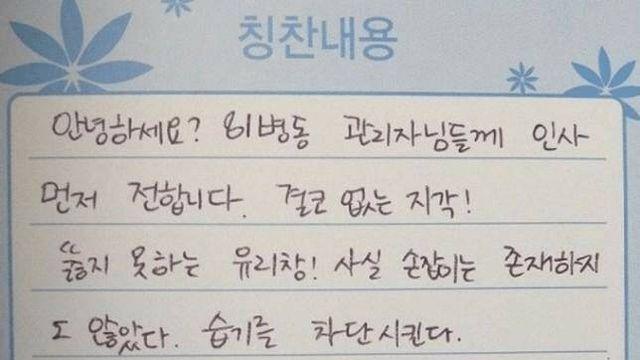 칭찬내용
안녕하세요? 81병동 관리자님들께 인사
먼저 전합니다. 결코 없는 지각!
"뚫지 못하는 유리창! 사실 손잡이는 존재하지
도 않았다. 습기를 차단시킨다.